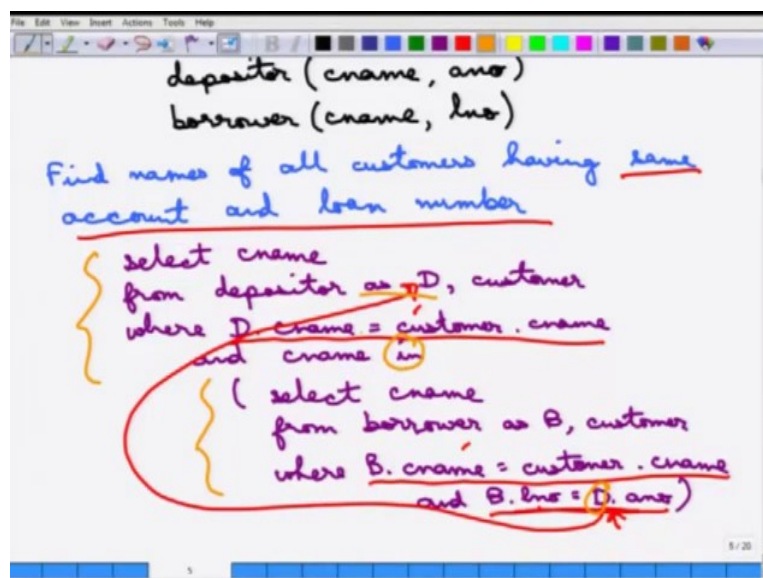 File Edit View Insert Actions Tools Help
depositor (cname, ano)
borrower (cname, lno)
Find names of all customers having same
account and loan number
select cname
from depositor as D, customer
where D.cname = customer.cname
and cname in
( select cname
from borrower as B, customer
where B.cname = customer.cname
and B.lno = D.ano)
5 / 20
5